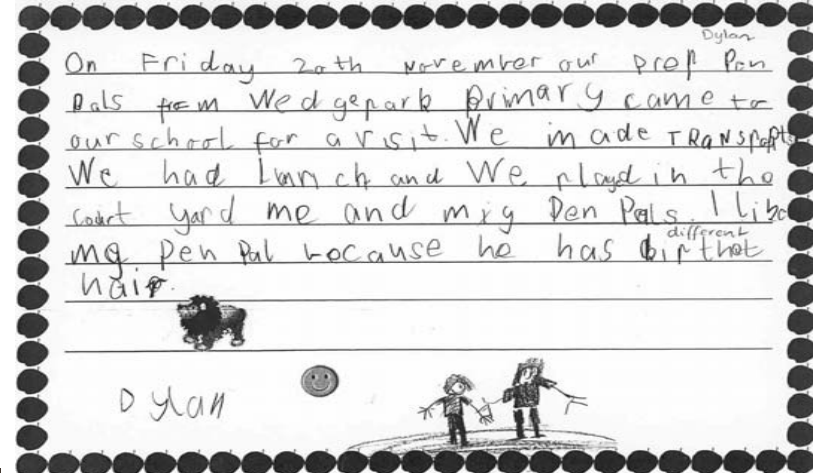 Dylan
On Friday 20th november our prep Pen
Pals from Wedgepark Primary came to
our school for a visit. We made TRANSPORT
We had Lunch and We playd in the
court yard me and my Pen Pals. I like
different
my Pen Pal because he has hair.
Dylan